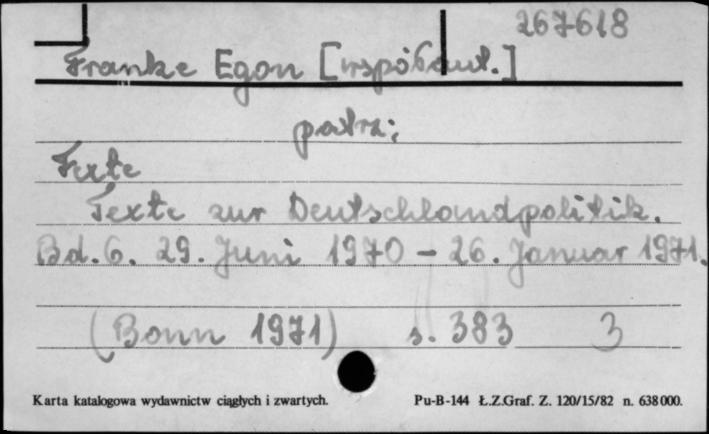 267618
Franke Egon [współaut.]
patrz:
Texte
Texte zur Deutschlandpolitik.
Bd. 6. 29. Juni 1970 - 26. Januar 1971.
(Bonn 1971) s. 383 3
Karta katalogowa wydawnictw ciągłych i zwartych. Pu-B-144 Ł.Z.Graf. Z. 120/15/82 n. 638000.